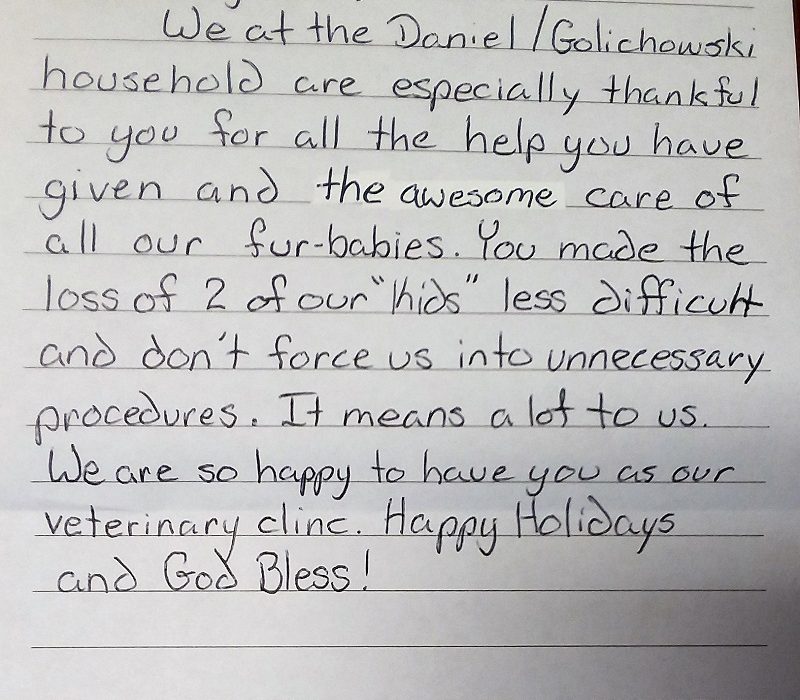 We at the Daniel/Golichowski
household are especially thankful
to you for all the help you have
given and the awesome care of
all our fur-babies. You made the
loss of 2 of our "kids" less difficult
and don't force us into unnecessary
procedures. It means a lot to us.
We are so happy to have you as our
veterinary clinc. Happy Holidays
and God Bless!